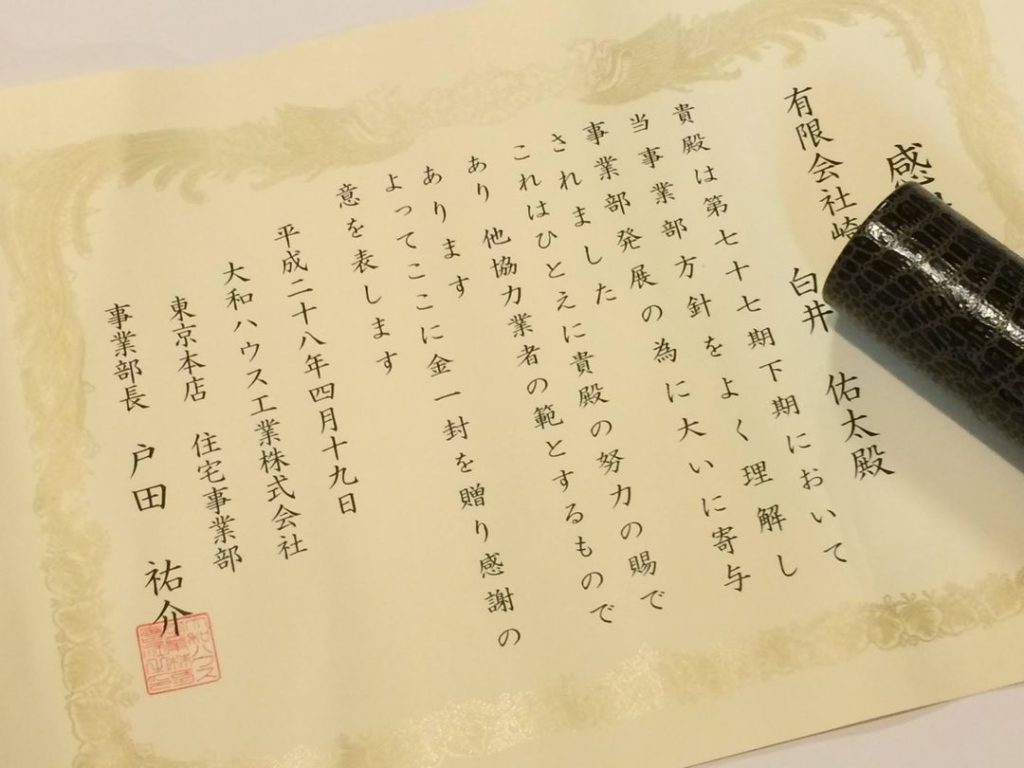 感
有限会社崎 白井 佑太殿
貴殿は第七十七期下期において
当事業部方針をよく理解し
事業部発展の為に大いに寄与
されました
これはひとえに貴殿の努力の賜で
あり 他協力業者の範とするもので
あります
よってここに金一封を贈り感謝の
意を表します
平成二十八年四月十九日
大和ハウス工業株式会社
東京本店 住宅事業部
事業部長 戸田 祐介